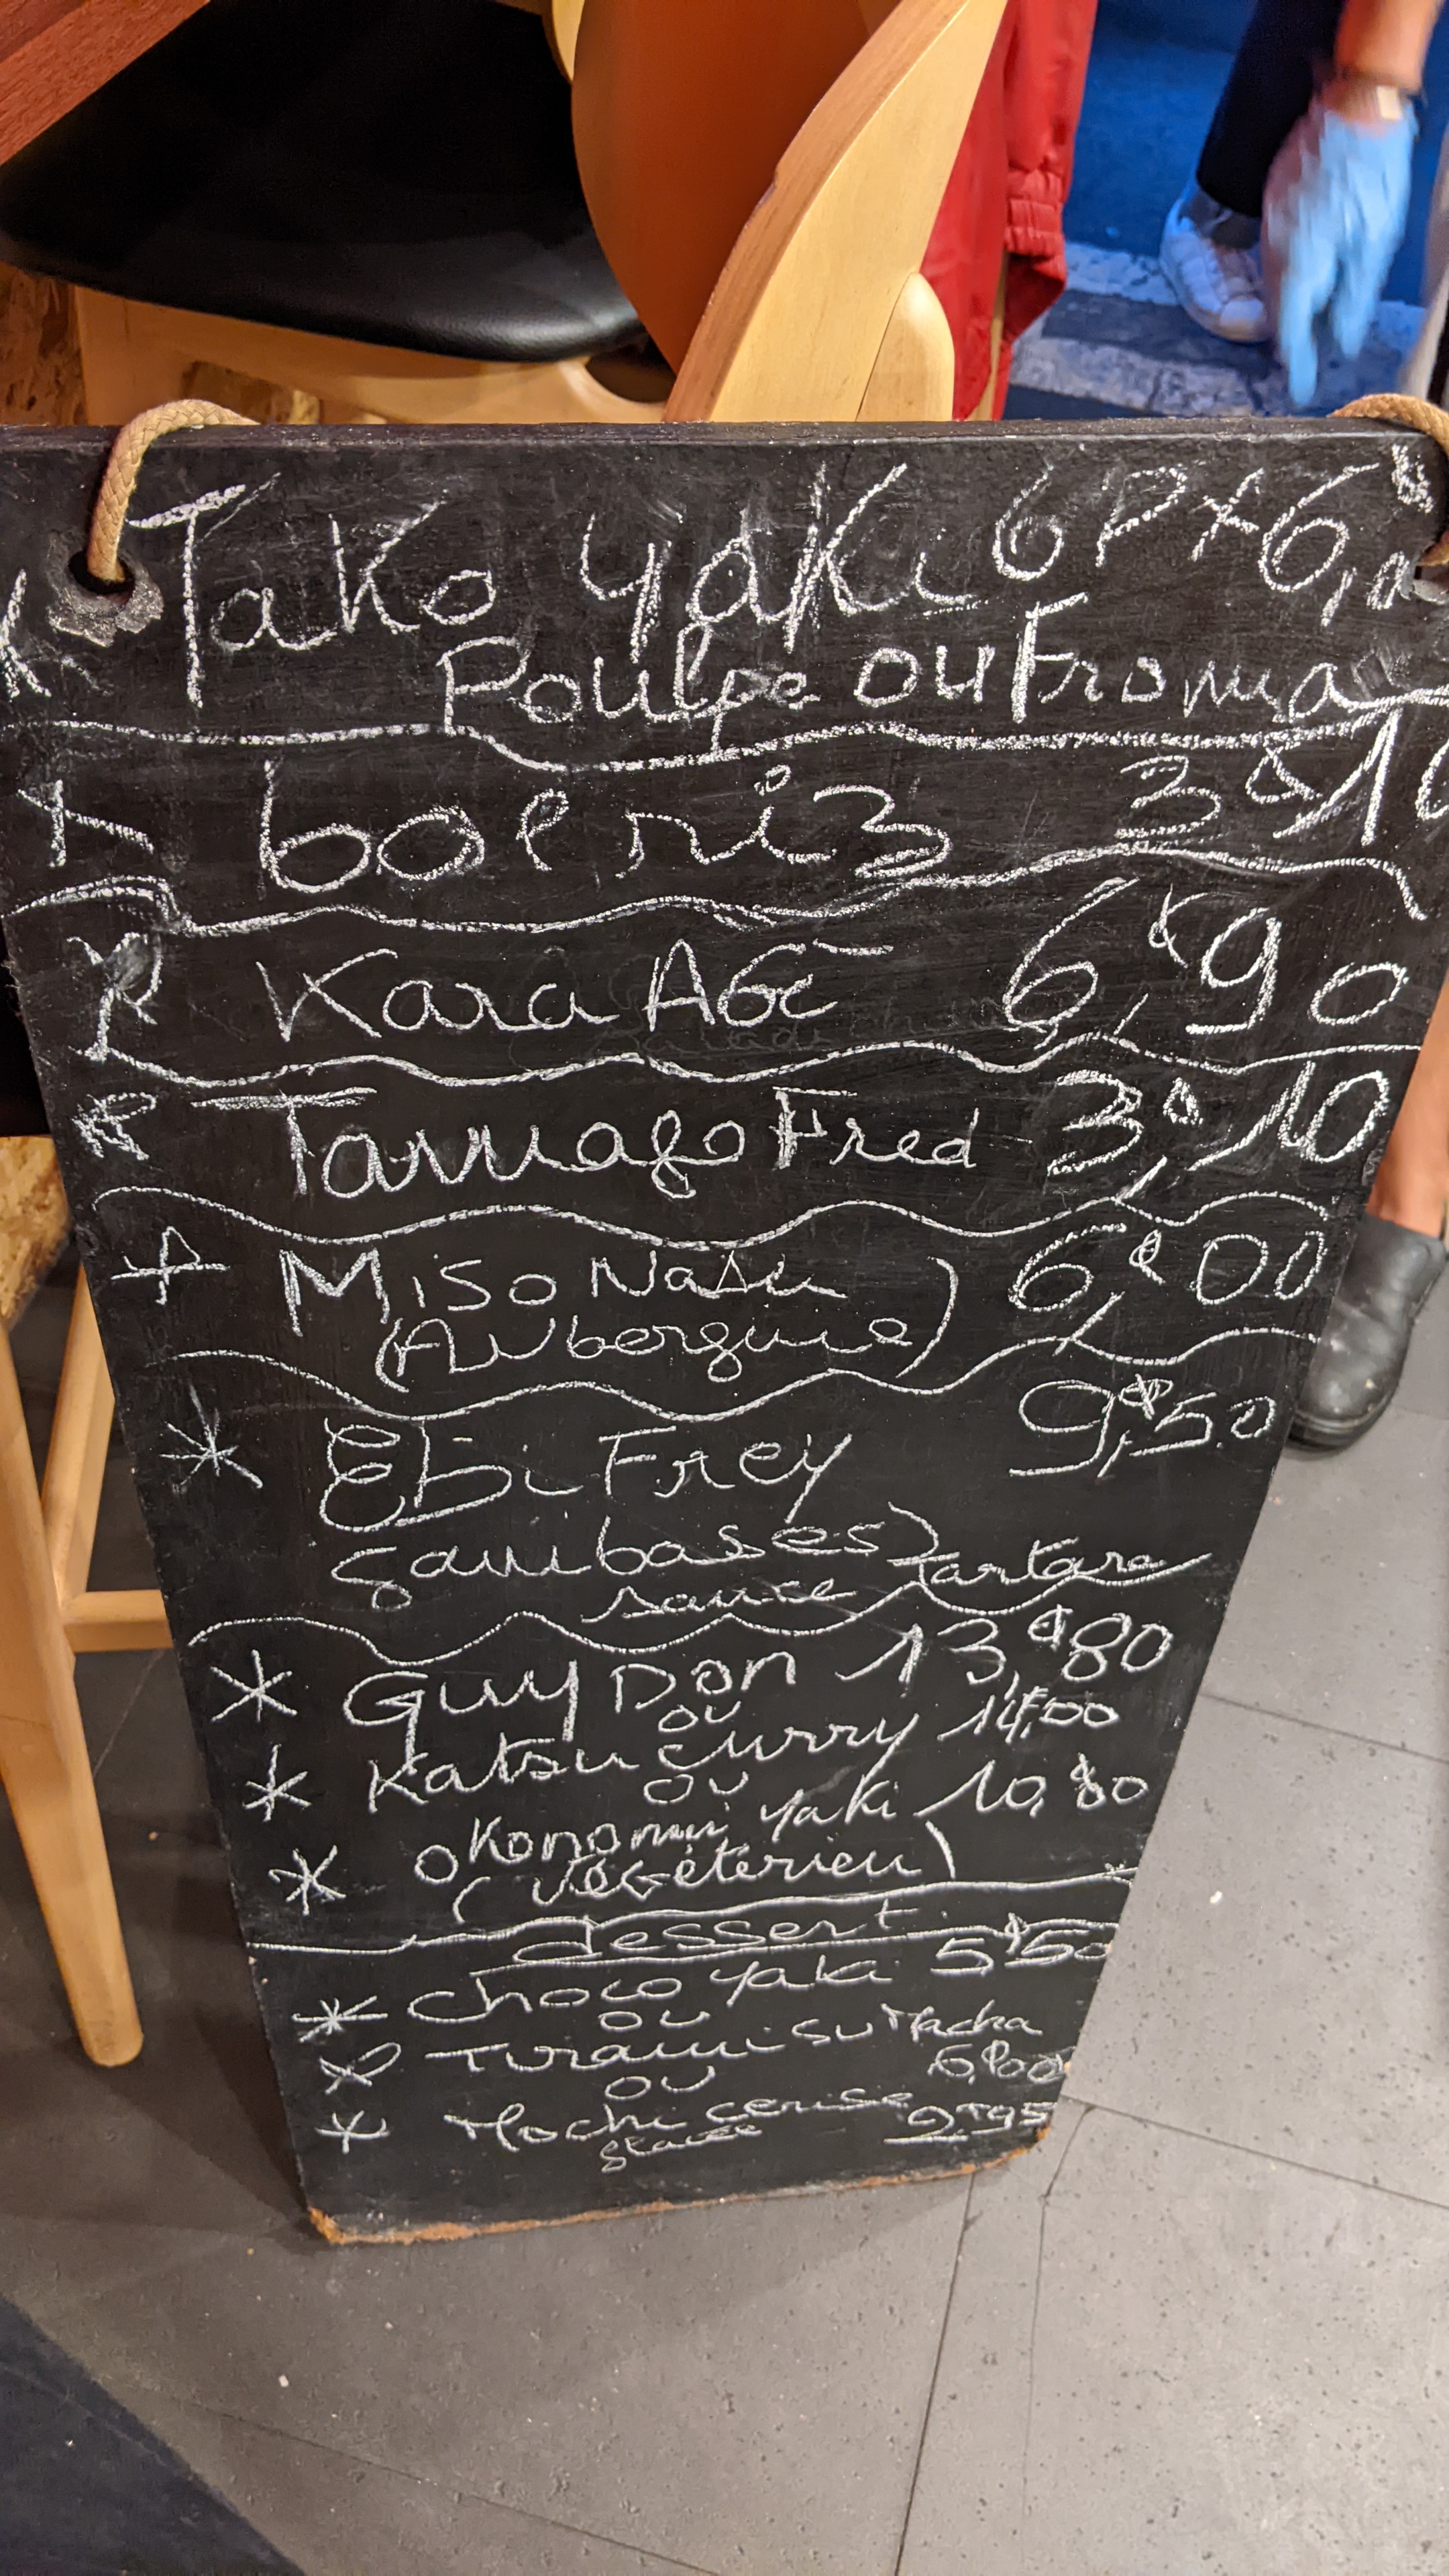 Tako yaki 6P
Poulpe ou Froma
bol riz 3€10
Kara AGE 6,€90
Tamago Fred 3,€10
Miso Nasu 6,€00
(Aubergine)
Ebi Frey 9,€50
gambas
sauce tartare
Guy Don 13,€80
ou
Katsu curry 14,€00
ou
okonomi yaki 10,80
(végéterien)
dessert
choco yaki 5€50
ou
Tiramisu Macha
6,€00
ou
Mochi cerise 2€95
glacée